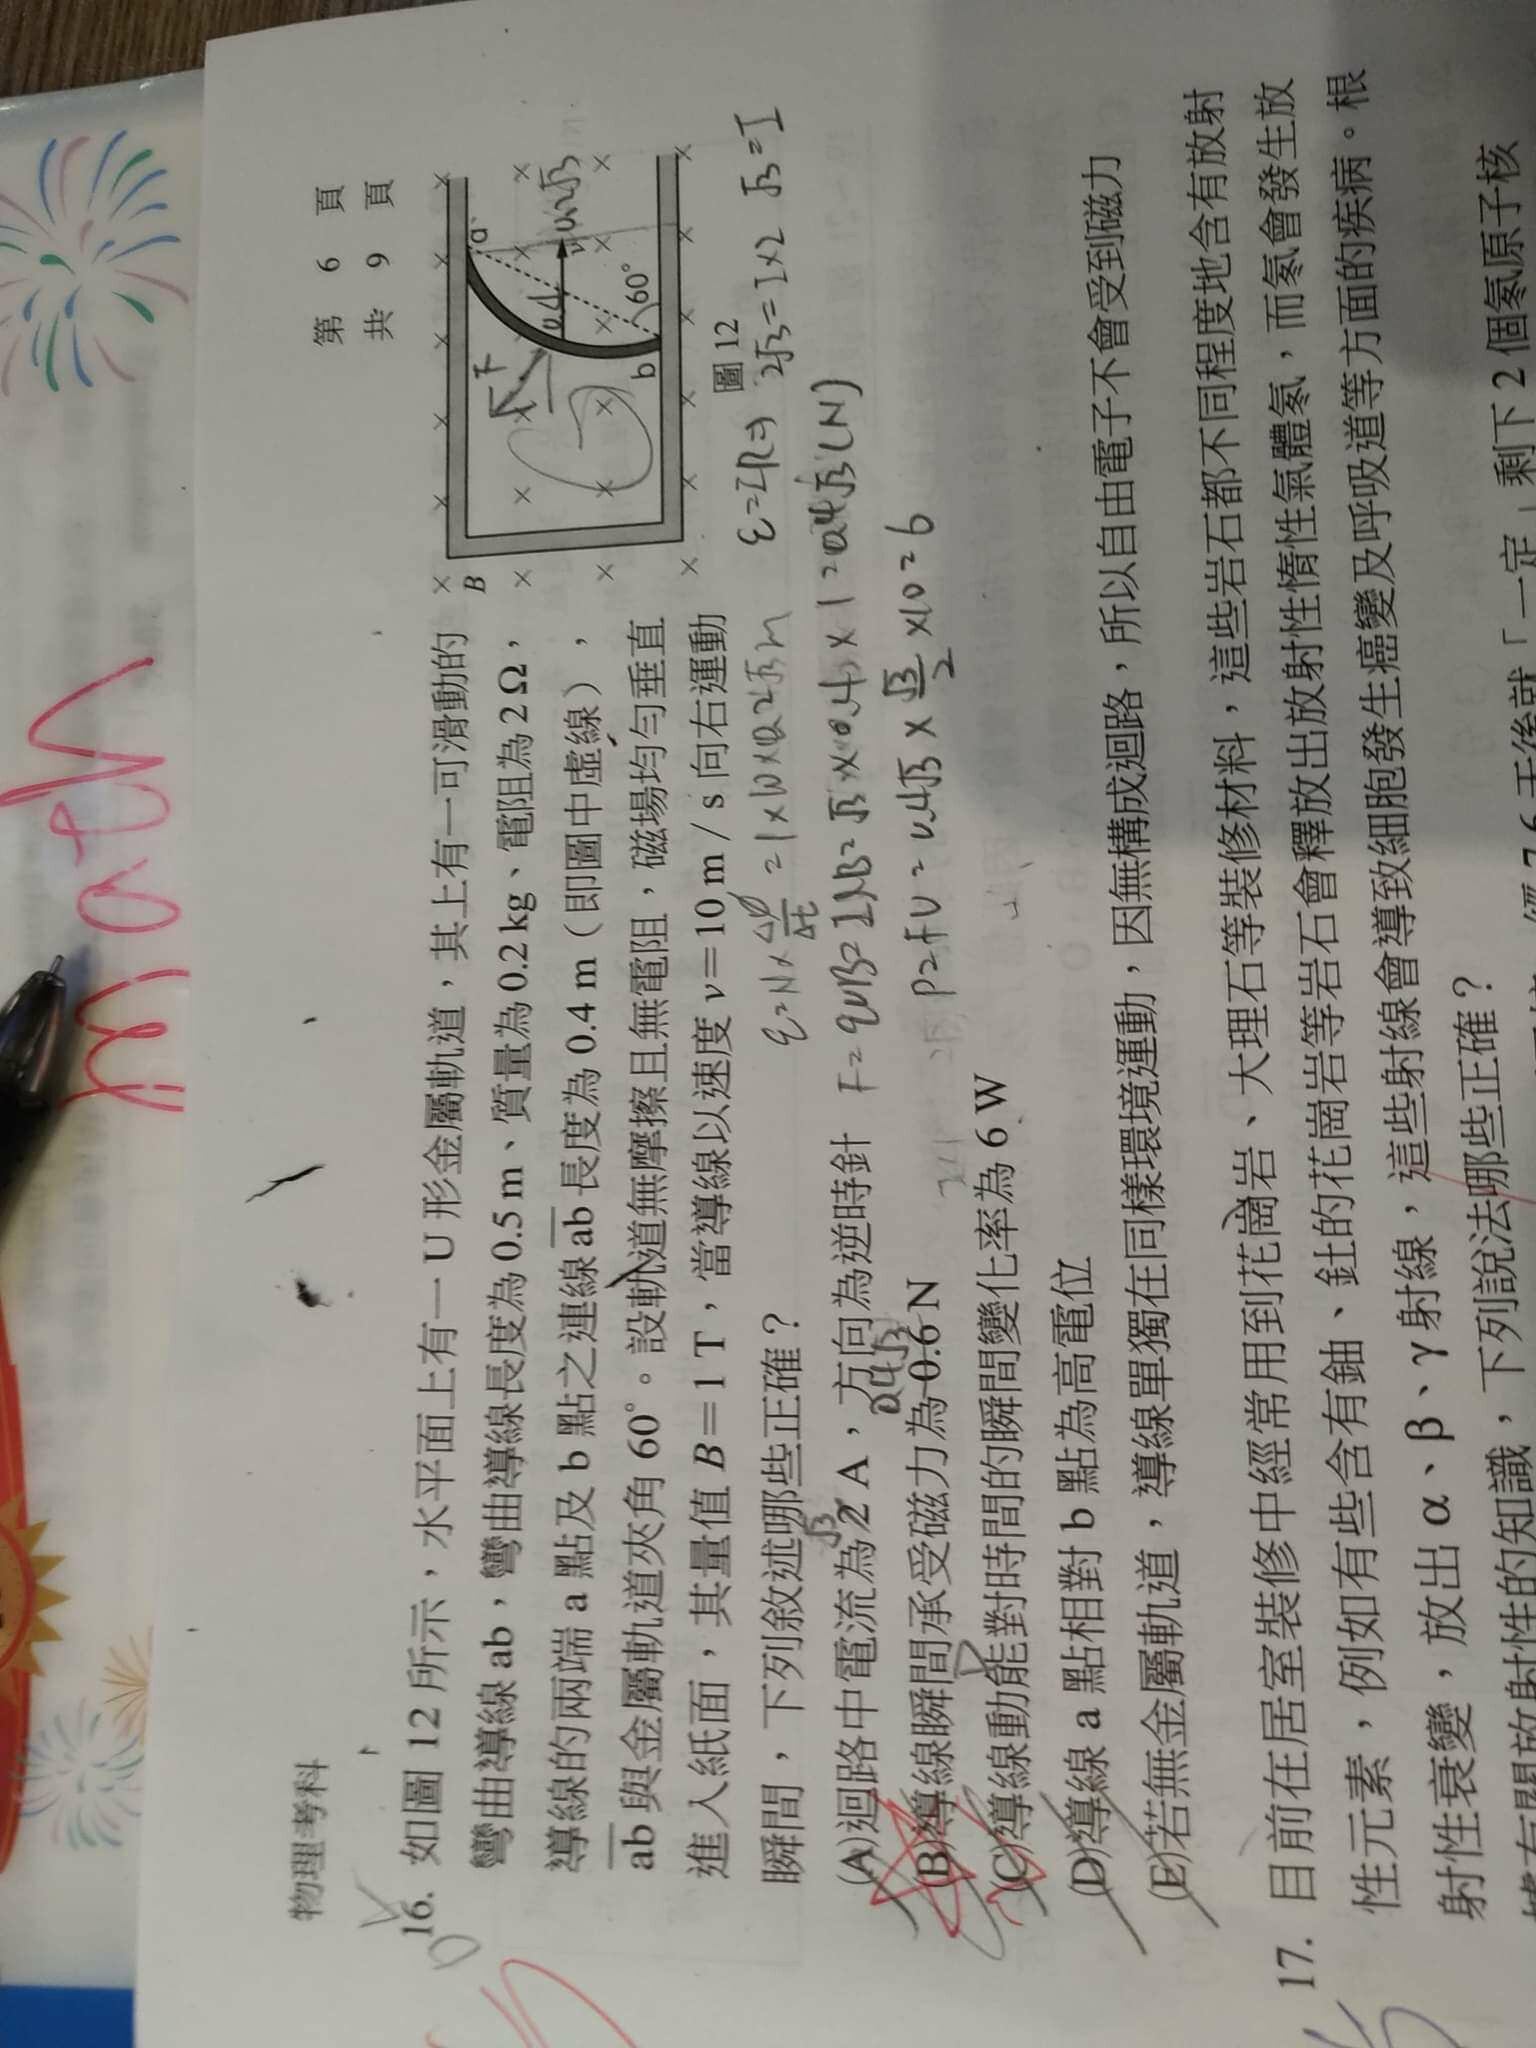 math
物理考科
第 6 頁
共 9 頁
16. 如圖 12 所示，水平面上有一 U 形金屬軌道，其上有一可滑動的
彎曲導線 ab，彎曲導線長度為 0.5 m、質量為 0.2 kg、電阻為 2 Ω，
導線的兩端 a 點及 b 點之連線 ab 長度為 0.4 m（即圖中虛線），
ab 與金屬軌道夾角 60°。設軌道無摩擦且無電阻，磁場均勻垂直
進入紙面，其量值 B＝1 T，當導線以速度 v＝10 m / s 向右運動
瞬間，下列敘述哪些正確？
(A)迴路中電流為 2 A，方向為逆時針
√3
(B)導線瞬間承受磁力為 0.6 N
0.4√3
(C)導線動能對時間的瞬間變化率為 6 W
(D)導線 a 點相對 b 點為高電位
(E)若無金屬軌道，導線單獨在同樣環境運動，因無構成迴路，所以自由電子不會受到磁力
B
a
b
60°
圖 12
ε=IR⇒ 2√3=I×2 √3=I
ε=N×Δφ/Δt=1×10×0.2√3m
F=qvB=IlB=√3×0.4×1=0.4√3(N)
P=FV=0.4√3×√3/2×10=6
17. 目前在居室裝修中經常用到花崗岩、大理石等裝修材料，這些岩石都不同程度地含有放射
性元素，例如有些含有鈾、釷的花崗岩等岩石會釋放出放射性惰性氣體氡，而氡會發生放
射性衰變，放出 α、β、γ 射線，這些射線會導致細胞發生癌變及呼吸道等方面的疾病。根
據有關放射性的知識，下列說法哪些正確？
天後就「一定」剩下 2 個氡原子核